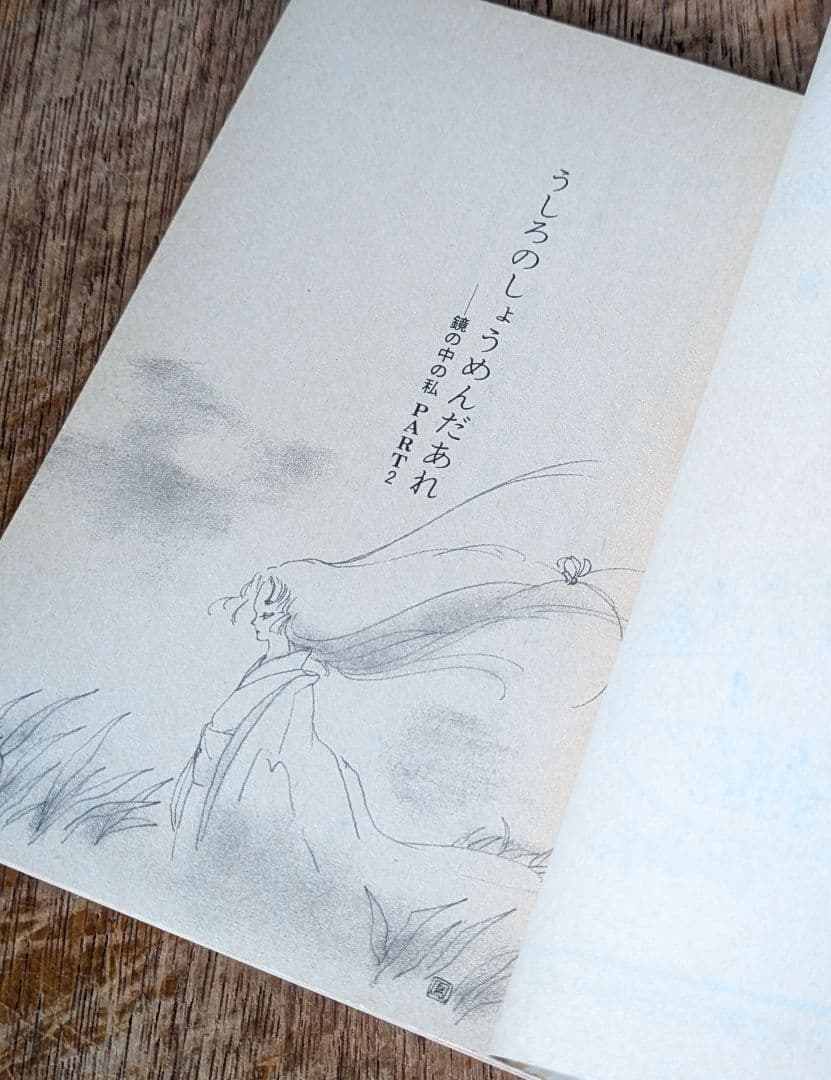 うしろのしょうめんだあれ
――鏡の中の私 PART2